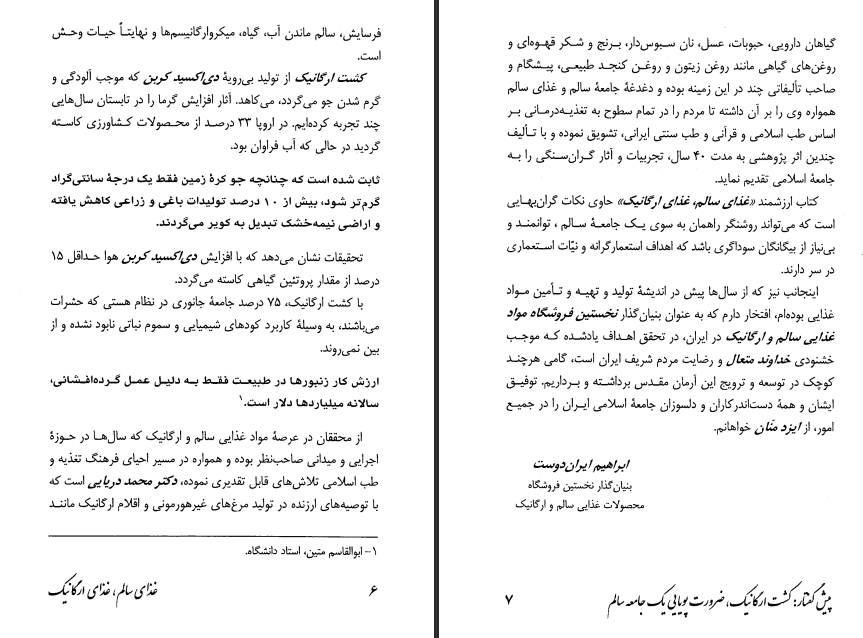 فرسایش، سالم ماندن آب، گیاه، میکروارگانیسم‌ها و نهایتاً حیات وحش
است.
کشت ارگانیک از تولید بی‌رویهٔ دی‌اکسید کربن که موجب آلودگی و
گرم شدن جو می‌گردد، می‌کاهد. آثار افزایش گرما را در تابستان سال‌هایی
چند تجربه کرده‌ایم. در اروپا ۳۳ درصد از محصولات کشاورزی کاسته
گردید در حالی که آب فراوان بود.
ثابت شده است که چنانچه جو کرهٔ زمین فقط یک درجهٔ سانتی‌گراد
گرم‌تر شود، بیش از ۱۰ درصد تولیدات باغی و زراعی کاهش یافته
و اراضی نیمه‌خشک تبدیل به کویر می‌گردند.
تحقیقات نشان می‌دهد که با افزایش دی‌اکسید کربن هوا حداقل ۱۵
درصد از مقدار پروتئین گیاهی کاسته می‌گردد.
با کشت ارگانیک، ۷۵ درصد جامعهٔ جانوری در نظام هستی که حشرات
می‌باشند، به وسیلهٔ کاربرد کودهای شیمیایی و سموم نباتی نابود نشده و از
بین نمی‌روند.
ارزش کار زنبورها در طبیعت فقط به دلیل عمل گرده‌افشانی،
سالانه میلیاردها دلار است.۱
از محققان در عرصهٔ مواد غذایی سالم و ارگانیک که سال‌ها در حوزهٔ
اجرایی و میدانی صاحب‌نظر بوده و همواره در مسیر احیای فرهنگ تغذیه و
طب اسلامی تلاش‌های قابل تقدیری نموده، دکتر محمد دریایی است که
با توصیه‌های ارزنده در تولید مرغ‌های غیرهورمونی و اقلام ارگانیک مانند
۱- ابوالقاسم متین، استاد دانشگاه.
۶ غذای سالم، غذای ارگانیک
گیاهان دارویی، حبوبات، عسل، نان سبوس‌دار، برنج و شکر قهوه‌ای و
روغن‌های گیاهی مانند روغن زیتون و روغن کنجد طبیعی، پیشگام و
صاحب تألیفاتی چند در این زمینه بوده و دغدغهٔ جامعهٔ سالم و غذای سالم
همواره وی را بر آن داشته تا مردم را در تمام سطوح به تغذیه‌درمانی بر
اساس طب اسلامی و قرآنی و طب سنتی ایرانی، تشویق نموده و با تألیف
چندین اثر پژوهشی به مدت ۴۰ سال، تجربیات و آثار گران‌سنگی را به
جامعهٔ اسلامی تقدیم نماید.
کتاب ارزشمند «غذای سالم، غذای ارگانیک» حاوی نکات گران‌بهایی
است که می‌تواند روشنگر راهمان به سوی یک جامعهٔ سالم ، توانمند و
بی‌نیاز از بیگانگان سوداگری باشد که اهداف استعمارگرانه و نیّات استعماری
در سر دارند.
اینجانب نیز که از سال‌ها پیش در اندیشهٔ تولید و تهیه و تأمین مواد
غذایی بوده‌ام، افتخار دارم که به عنوان بنیان‌گذار نخستین فروشگاه مواد
غذایی سالم و ارگانیک در ایران، در تحقق اهداف یادشده که موجب
خشنودی خداوند متعال و رضایت مردم شریف ایران است، گامی هرچند
کوچک در توسعه و ترویج این آرمان مقدس برداشته و برداریم. توفیق
ایشان و همهٔ دست‌اندرکاران و دلسوزان جامعهٔ اسلامی ایران را در جمیع
امور، از ایزد منّان خواهانم.
ابراهیم ایران‌دوست
بنیان‌گذار نخستین فروشگاه
محصولات غذایی سالم و ارگانیک
پیش گفتار: کشت ارگانیک، ضرورت پویایی یک جامعه سالم ۷